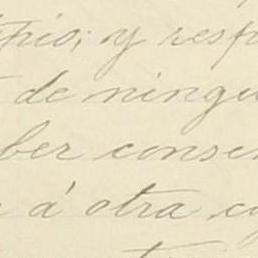 pio; y resp
de ningu
ber conse
a á otra c